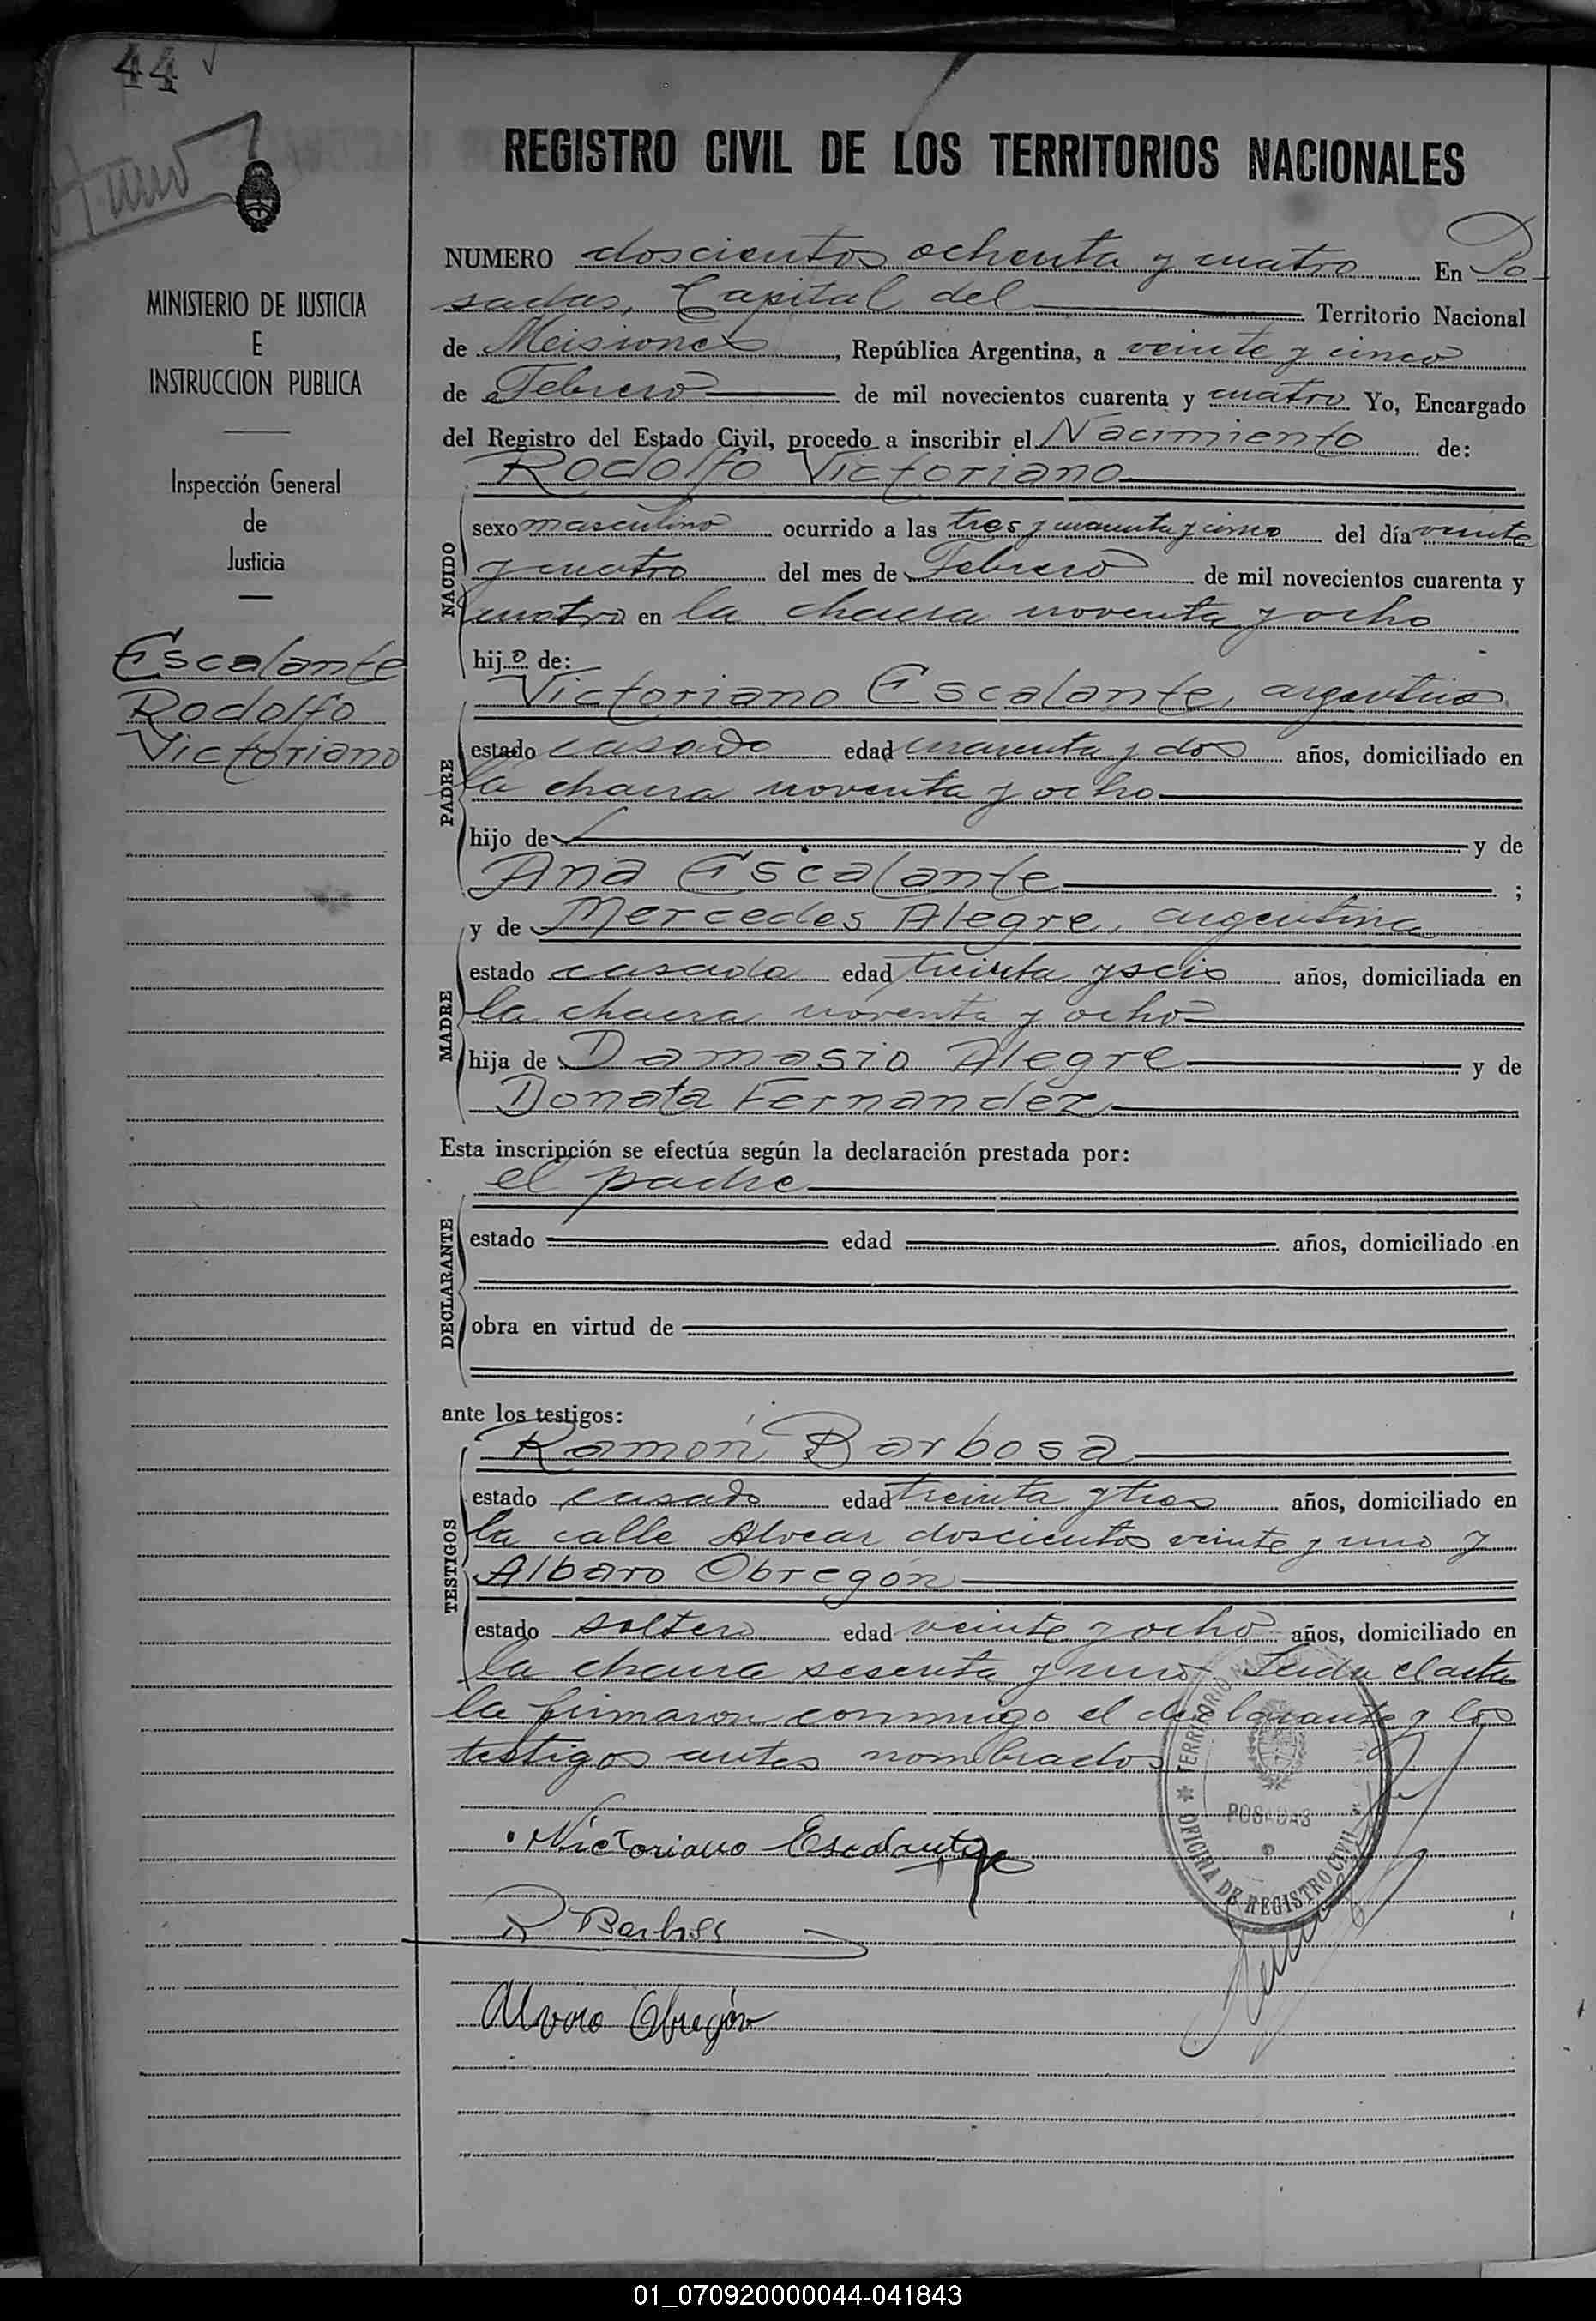 44
REGISTRO CIVIL DE LOS TERRITORIOS NACIONALES
MINISTERIO DE JUSTICIA
E
INSTRUCCION PUBLICA
Inspección General
de
Justicia
Escalante
Rodolfo
Victoriano
NUMERO doscientos ochenta y cuatro En Po-
sadas, Capital del Territorio Nacional
de Misiones, República Argentina, a veinte y cinco
de Febrero de mil novecientos cuarenta y cuatro Yo, Encargado
del Registro del Estado Civil, procedo a inscribir el Nacimiento de:
Rodolfo Victoriano
NACIDO
sexo masculino ocurrido a las tres y cuarenta y cinco del día veinte
y cuatro del mes de Febrero de mil novecientos cuarenta y
cuatro en la chacra noventa y ocho
hijo de:
PADRE
Victoriano Escalante, argentino
estado casado edad cuarenta y dos años, domiciliado en
la chacra noventa y ocho
hijo de y de
Ana Escalante ;
MADRE
y de Mercedes Alegre, argentina
estado casada edad treinta y seis años, domiciliada en
la chacra noventa y ocho
hija de Damasio Alegre y de
Donata Fernandez
Esta inscripción se efectúa según la declaración prestada por:
el padre
DECLARANTE
estado edad años, domiciliado en
obra en virtud de
ante los testigos:
TESTIGOS
Ramón Barbosa
estado casado edad treinta y tres años, domiciliado en
la calle Alvear doscientos veinte y uno y
Albaro Obregón
estado soltero edad veinte y ocho años, domiciliado en
la chacra sesenta y uno. Leida el acta
la firmaron conmigo el declarante y los
testigos antes nombrados
TERRITORIO
POSADAS
OFICINA DE REGISTRO CIVIL
Victoriano Escalante
R Barbosa
Alvaro Obregón
01_070920000044-041843